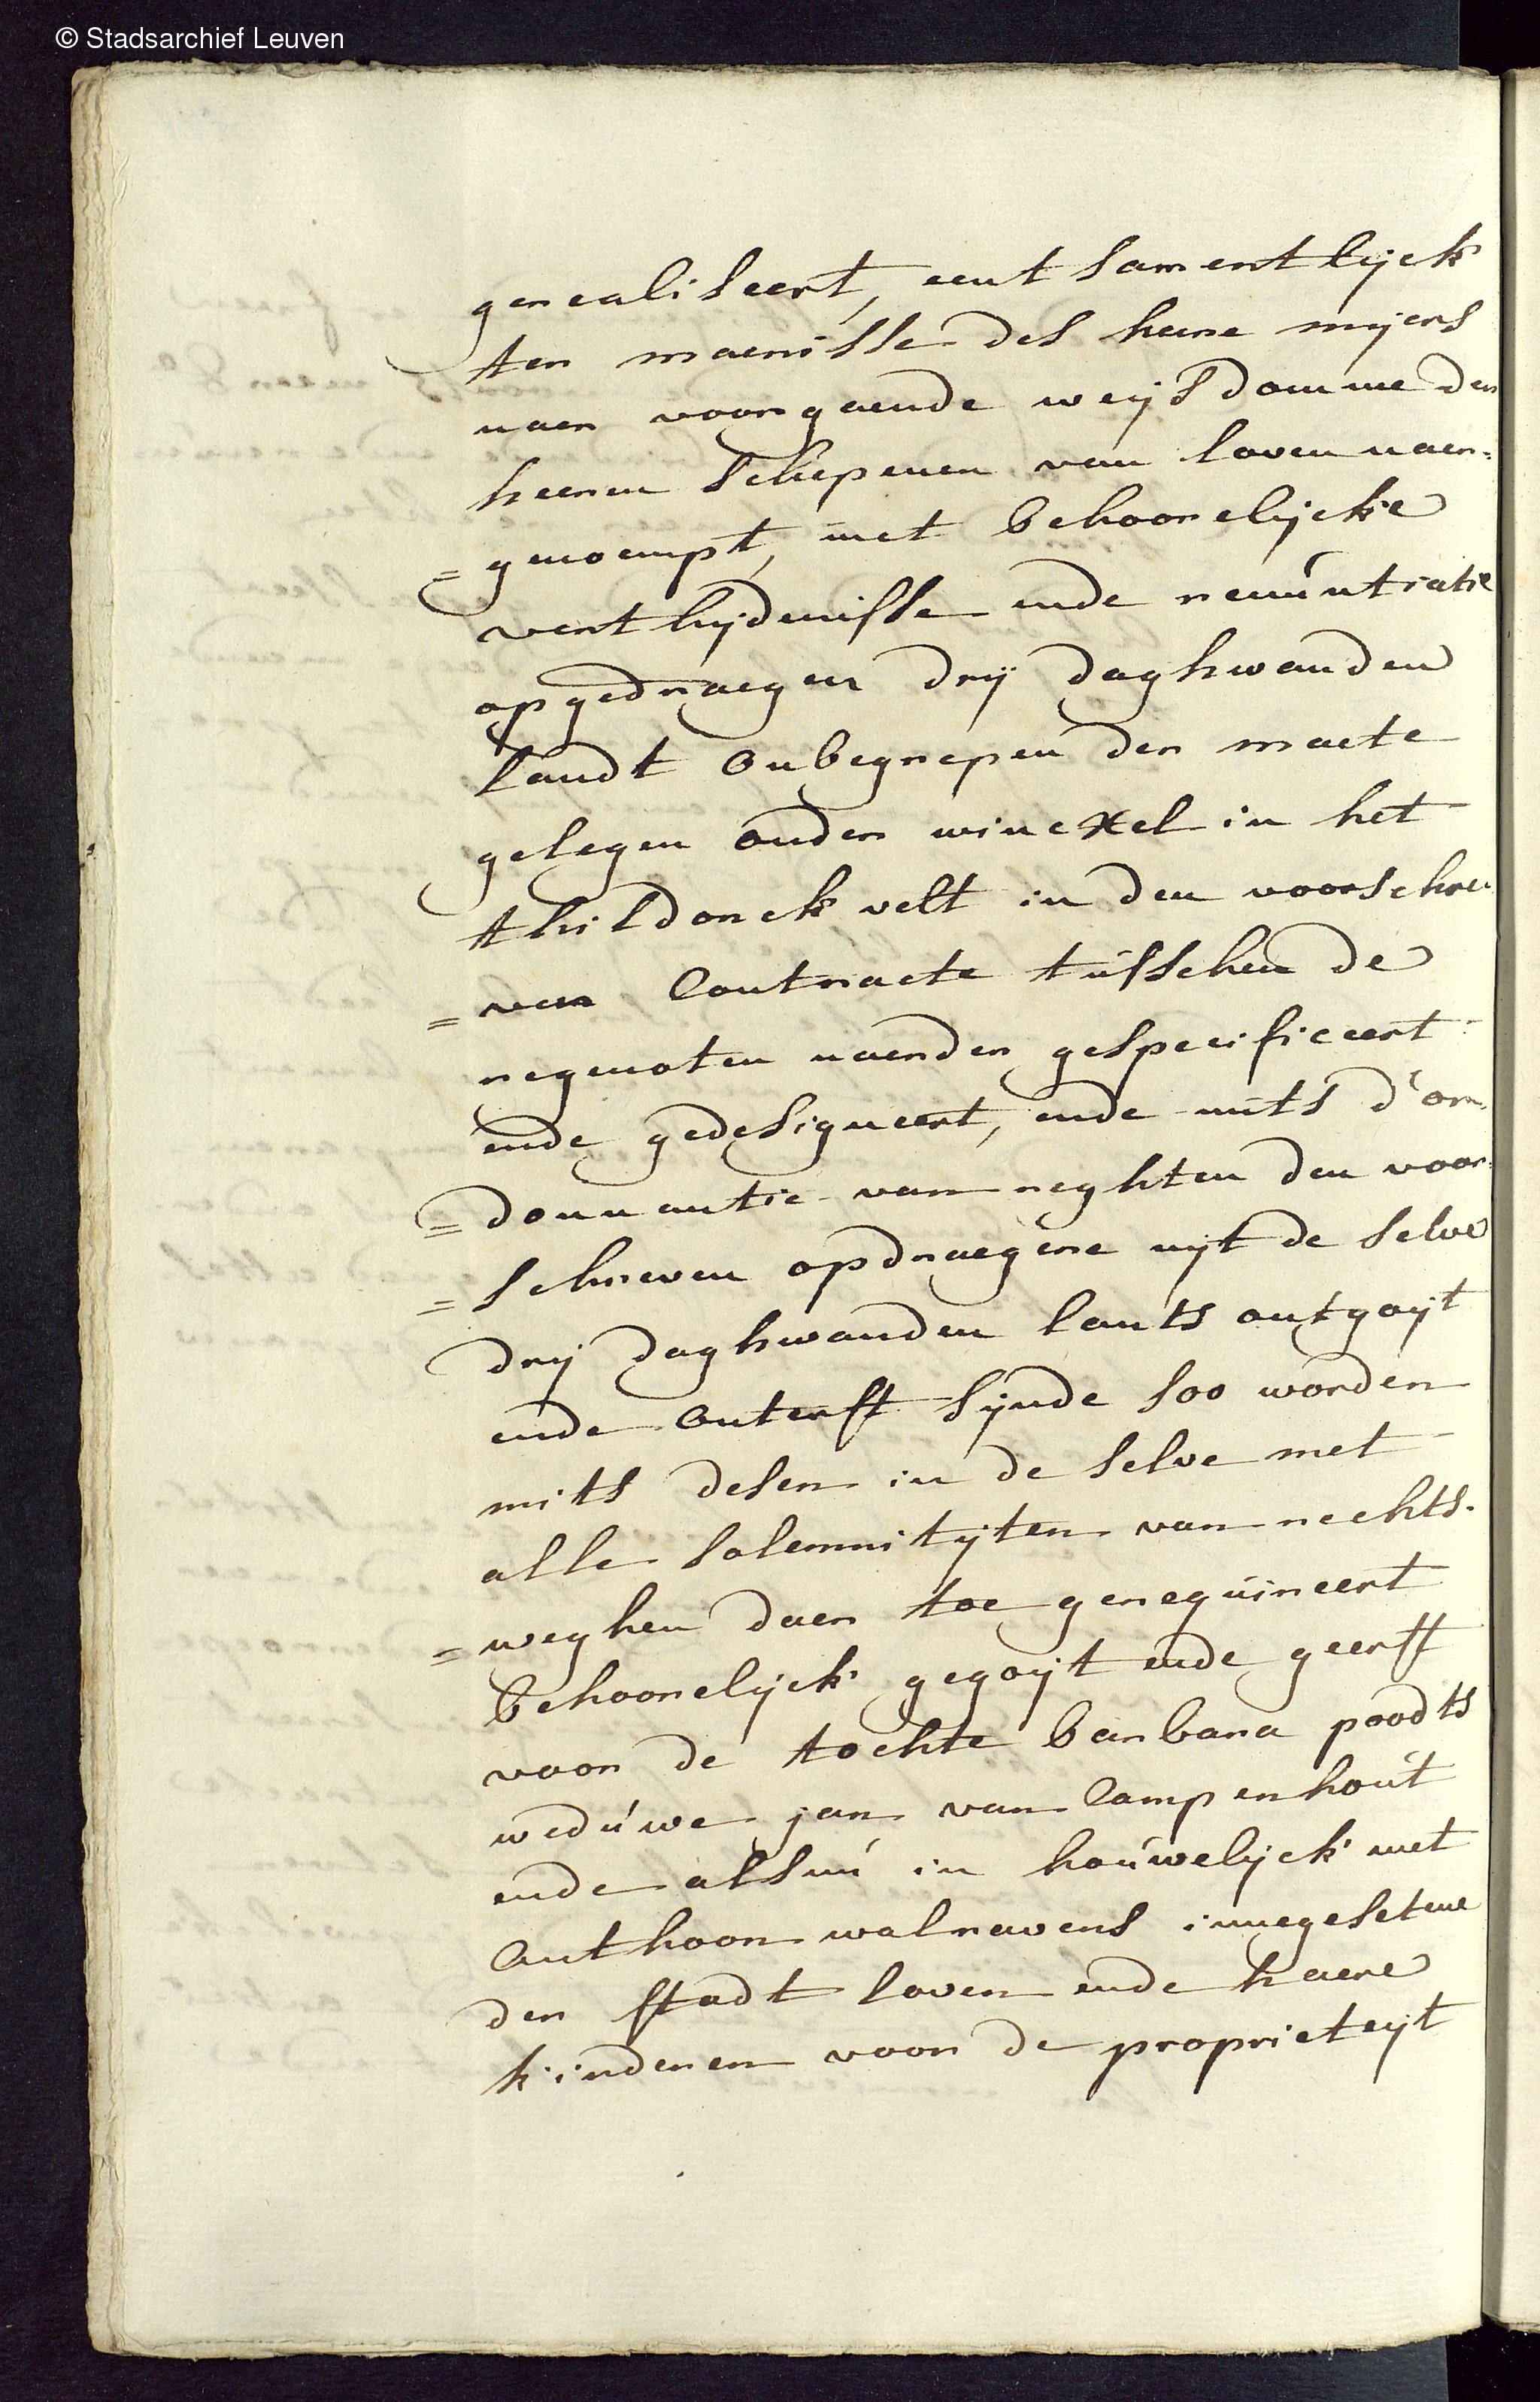 © Stadsarchief Leuven
gerealiseert, eent samentlijck
ter maenisse des heere meijers
naer voorgaende weijsdomme der
heeren schepenen van loven naer=
=genoempt, met behoorelijcke
verthijdenisse ende renuntiatie
opgedraegen drij daghwanden
landt onbegrepen der maete
gelegen onder wincxel in het
thildonck velt in den voorschre
=ven Contracte tusschen de
regenoten naerder gespecificeert
ende gedesigneert, ende mits d'or=
=donnantie van reghten den voor=
=schreven opdraegere uijt de selve
drij daghwanden lants ontgoijt
ende onterft sijnde soo worden
mits desen in de selve met
alle solemnitijten van rechts=
=weghen daer toe gerequireert
behoorelijck gegoijt ende geerft
voor de tochte barbara poodts
weduwe jan van Campenhout
ende alsnu in houwelijck met
Anthoon walravens innegesetene
der stadt loven ende haere
kinderen voor de proprieteijt